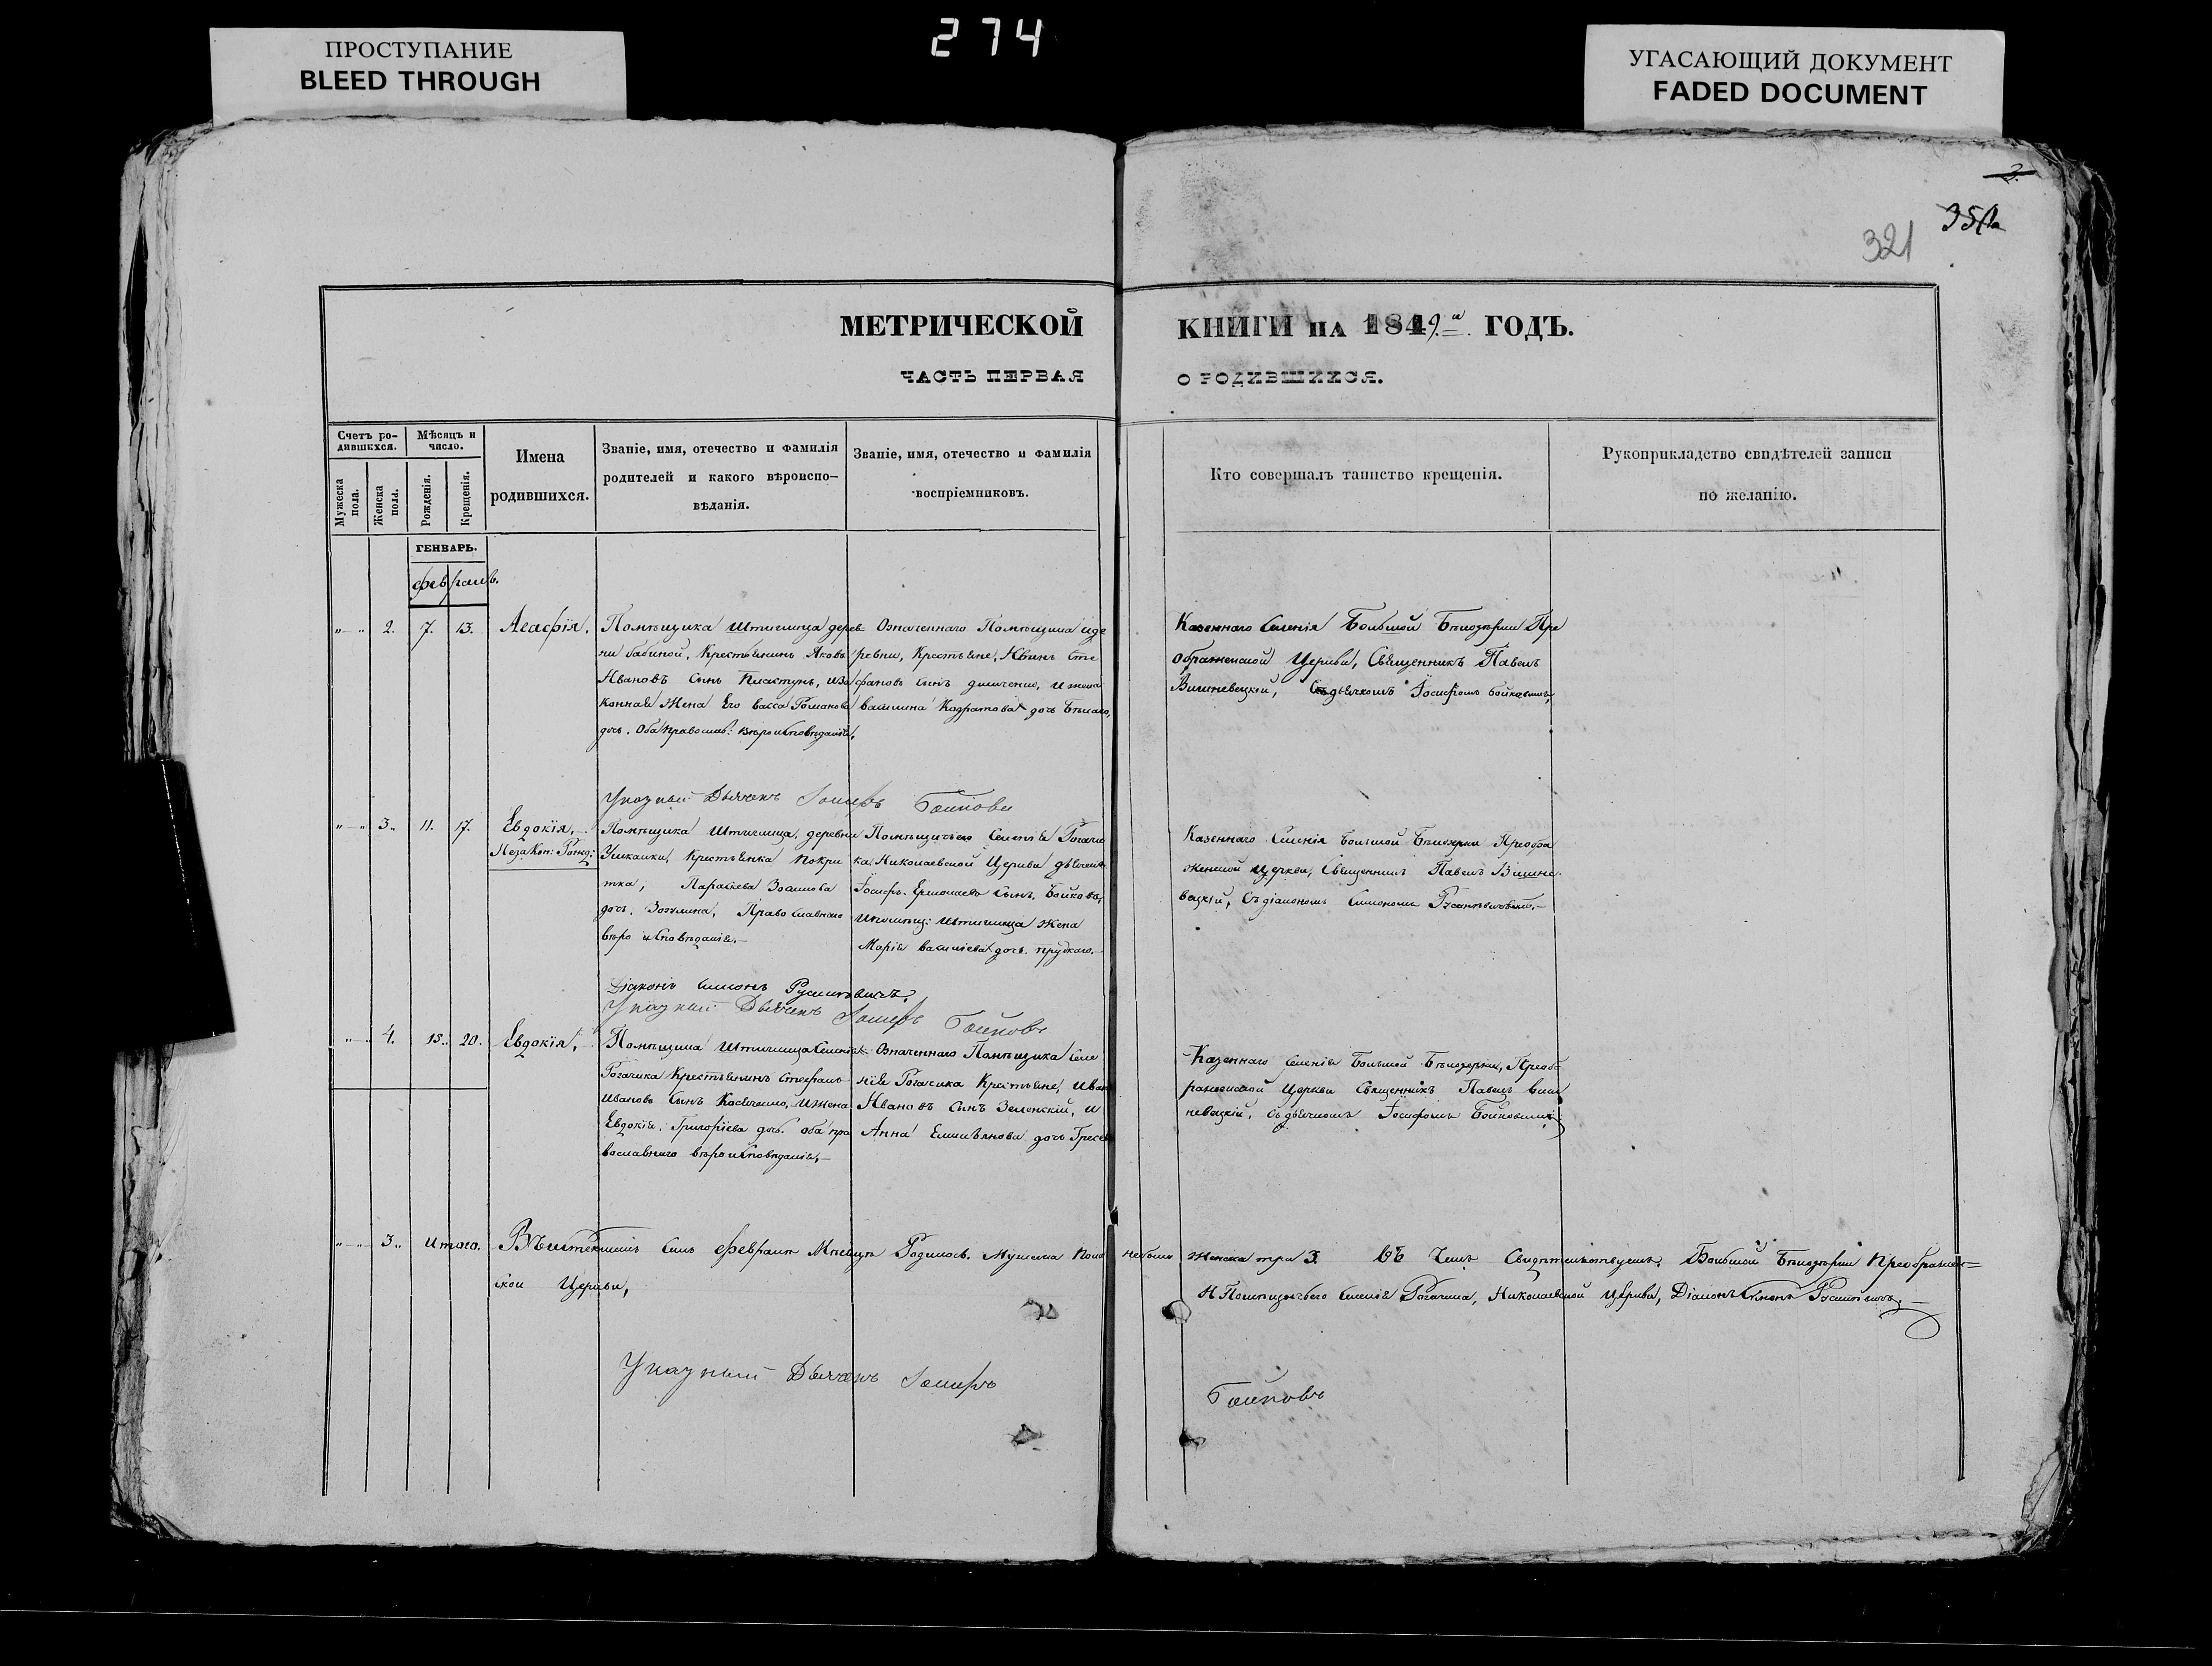 ПРОСТУПАНИЕ
BLEED THROUGH
274
УГАСАЮЩИЙ ДОКУМЕНТ
FADED DOCUMENT
3.
321
МЕТРИЧЕСКОЙ КНИГИ НА 1849.й ГОДЪ.
ЧАСТЬ ПЕРВАЯ О РОДИВШИХСЯ.
Счетъ ро-
дившихся.
Мужеска пола.
Женска пола.
Мѣсяцъ и
число.
Рожденія.
Крещенія.
Имена
родившихся.
Званіе, имя, отечество и фамилія
родителей и какого вѣроиспо-
вѣданія.
Званіе, имя, отечество и фамилія
воспріемниковъ.
Кто совершалъ таинство крещенія.
Рукоприкладство свидѣтелей записи
по желанію.
ГЕНВАРЬ.
февраль.
2. 7. 13. Агафія.
Помѣщика Штиглица дерев-
ни бабиной, Крестьянинъ Яковъ
Ивановъ Сынъ Пластунъ, иза
конная Жена Его васса Романова
дочь. Оба Православ: вѣроисповѣданія.
Означеннаго Помѣщика иде
ревни, Крестьяне, Иванъ Сте
фановъ Сынъ, и жена
дочь Бѣлаго,
Казеннаго Селенія Большой Бѣлозѣрки Пре
ображенской Церкви, Священникъ Павелъ
Вишневецкій, Съ дьячкомъ Іосифомъ Бойковымъ,
Указный Дьячекъ Іосифъ Бойковъ
3. 11. 17. Евдокія,
Незакон: Рожд:
Помѣщика Штиглица, деревни
Ушкалки, Крестьянка Покри
тка, Параскева
дочь. Православнаго
вѣроисповѣданія.—
Помѣщичьего Селенія Рогачи
ка Николаевской Церкви дьячекъ
Іосифъ Ермолаевъ Сынъ, Бойковъ,
Ипомѣщ: Штиглица Жена
Марія васильева дочь.
Казеннаго Селенія Большой Бѣлозерки Преобра
женской Церкви, Священникъ Павелъ Вишне
вецкій, Съ діакономъ Симономъ
Діаконъ Симонъ
Указный Дьячекъ Іосифъ Бойковъ
4. 15. 20. Евдокія,
Помѣщика Штиглица Селенія
Рогачика Крестьянинъ Стефанъ
Ивановъ Сынъ Касьяненко, ИЖена
Евдокія, Григорьева дочь. Оба пра
вославнаго вѣроисповѣданія,—
Означеннаго Помѣщика Селе
нія Рогачика Крестьяне, Иванъ
Ивановъ Сынъ Зеленскій, и
Анна Емильянова дочь
Казеннаго Селенія Большой Бѣлозерки, Преоб
раженской Церкви Священникъ Павелъ Виш
невецкій, Съ дьячкомъ Іосифомъ Бойковымъ
3. Итого. Въистекшемъ Семъ февралѣ Мѣсяцѣ Родилось. Мужеска Пола небыло Женска три 3. Въ Чемъ Свидѣтельствуемъ. Большой Бѣлозѣрки Преображен=
ской Церкви, И Помѣщичьего Селенія Рогачика, Николаевской Церкви, Діаконъ Симонъ
Указный Дьячекъ Іосифъ Бойковъ